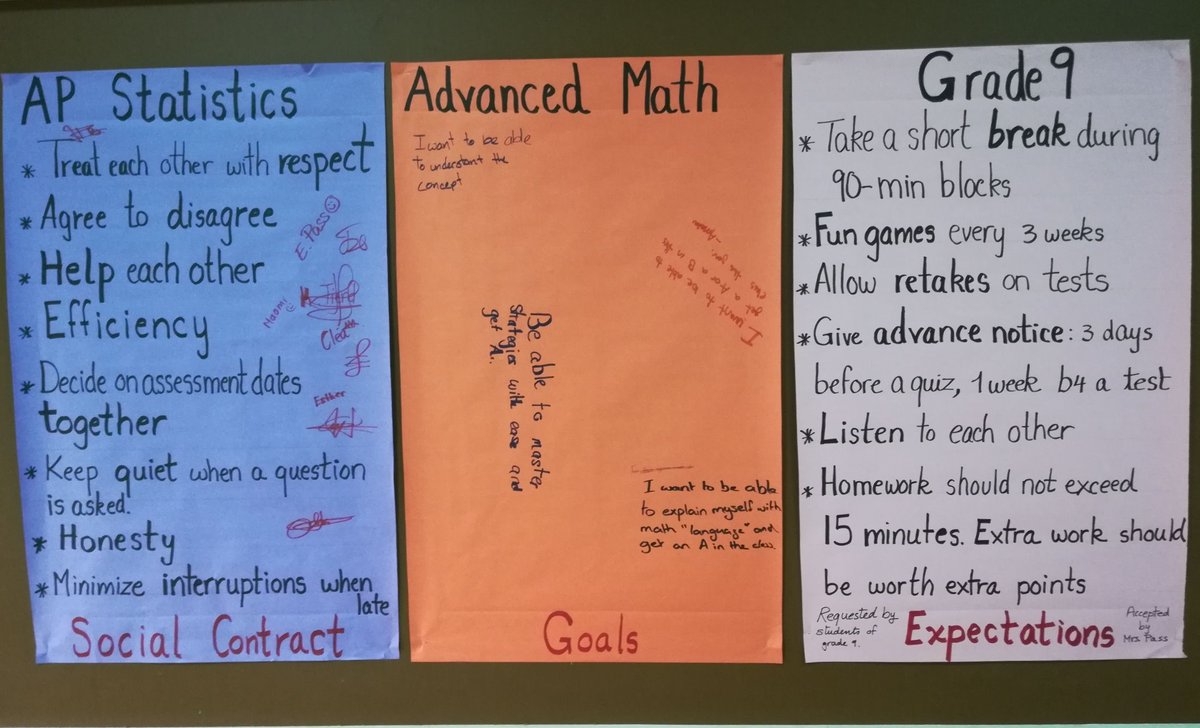 AP Statistics
* Treat each other with respect
* Agree to disagree
* Help each other
* Efficiency
* Decide on assessment dates
together
* Keep quiet when a question
is asked.
* Honesty
* Minimize interruptions when
late
E. Pass
Naomi
Cléa
Esther
Social Contract
Advanced Math
I want to be able
to understant the
concept
I want to be able to
get a A or a B in the
class
Be able to master
strategies with ease and
get A.
I want to be able
to explain myself with
math "language" and
get an A in the class.
Goals
Grade 9
* Take a short break during
90-min blocks
* Fun games every 3 weeks
* Allow retakes on tests
* Give advance notice: 3 days
before a quiz, 1 week b4 a test
* Listen to each other
* Homework should not exceed
15 minutes. Extra work should
be worth extra points
Requested by
students of
grade 9.
Expectations
Accepted
by
Mrs. Pass